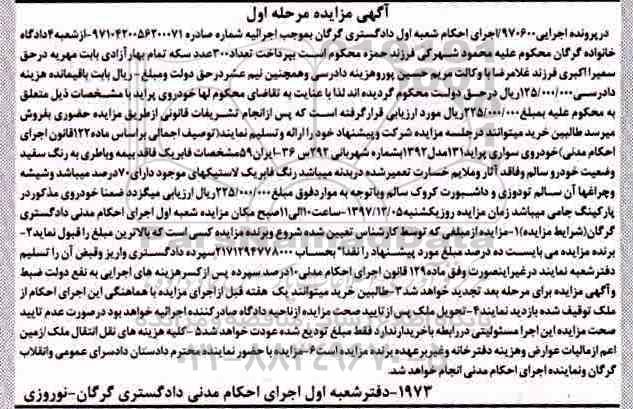 آگهی مزایده مرحله اول
درپرونده اجرایی۹۷۰۶۰۰/اجرای احکام شعبه اول دادگستری گرگان بموجب اجرائیه شماره صادره ۹۷۱۰۴۲۰۰۵۶۲۰۰۰۷۱-ازشعبه۴دادگاه
خانواده گرگان محکوم علیه محمود شهرکی فرزند حمزه محکوم است بپرداخت تعداد۳۰۰عدد سکه تمام بهارآزادی بابت مهریه درحق
سمیرا اکبری فرزند غلامرضا با وکالت مریم حسین پوروهزینه دادرسی وهمچنین نیم عشردرحق دولت ومبلغ - ریال بابت باقیمانده هزینه
دادرسی۱۲۵/۰۰۰/۰۰۰ریال درحق دولت محکوم گردیده اند لذا با عنایت به تقاضای محکوم لها خودروی پراید با مشخصات ذیل متعلق
به محکوم علیه بمبلغ۲۲۵/۰۰۰/۰۰۰ریال مورد ارزیابی قرارگرفته است که پس ازانجام تشریفات قانونی ازطریق مزایده حضوری بفروش
میرسد طالبین خرید میتوانند درجلسه مزایده شرکت وپیشنهاد خود را ارائه وتسلیم نمایند(توصیف اجمالی براساس ماده۱۲۲قانون اجرای
احکام مدنی)خودروی سواری پراید۱۳۱مدل۱۳۹۲بشماره شهربانی ۲۹۲س۳۶-ایران۵۹مشخصات فابریک فاقد بیمه وباطری به رنگ سفید
وضعیت خودرو سالم وفاقد آثار وملایم خسارت تعمیرشده دربدنه میباشد رنگ فابریک لاستیکهای موجود دارای۷۰درصد میباشد وشیشه
وچراغها آن سالم تودوزی و داشبورت کروک سالم وباتوجه به مواردفوق مبلغ۲۲۵/۰۰۰/۰۰۰ریال ارزیابی میگردد ضمنا خودروی مذکوردر
پارکینگ جامی میباشد زمان مزایده روزیکشنبه۱۳۹۷/۱۲/۰۵-ساعت۱۰الی۱۱صبح مکان مزایده شعبه اول اجرای احکام مدنی دادگستری
گرگان(شرایط مزایده)۱-مزایده ازمبلغی که توسط کارشناس تعیین شده شروع وبرنده مزایده کسی است که بالاترین مبلغ را قبول نماید۲-
برنده مزایده می بایست ده درصد مبلغ مورد پیشنهاد را نقدا" بحساب ۲۱۷۱۲۹۴۷۷۸۰۰۰سپرده دادگستری واریز وقبض آن را تسلیم
دفترشعبه نمایند درغیراینصورت وفق ماده۱۲۹قانون اجرای احکام مدنی۱۰درصد سپرده پس ازکسرهزینه های اجرایی به نفع دولت ضبط
وآگهی مزایده برای مرحله بعد تجدید خواهد شد۳-طالبین خرید میتوانند یک هفته قبل ازاجرای مزایده با هماهنگی این اجرای احکام از
ملک توقیف شده بازدید نمایند۴-تحویل ملک پس ازتایید صحت مزایده ازناحیه دادگاه صادرکننده اجرائیه خواهد بود درصورت عدم تایید
صحت مزایده این اجرا مسئولیتی دررابطه باخریدارندارد فقط مبلغ تودیع شده عودت خواهد شد۵-کلیه هزینه های نقل انتقال ملک ازمین
اعم ازمالیات عوارض وهزینه دفترخانه وغیربرعهده برنده مزایده است۶-مزایده با حضور نماینده محترم دادستان دادسرای عمومی وانقلاب
گرگان ونماینده اجرای احکام مدنی انجام خواهد شد.
۱۹۷۳-دفترشعبه اول اجرای احکام مدنی دادگستری گرگان-نوروزی